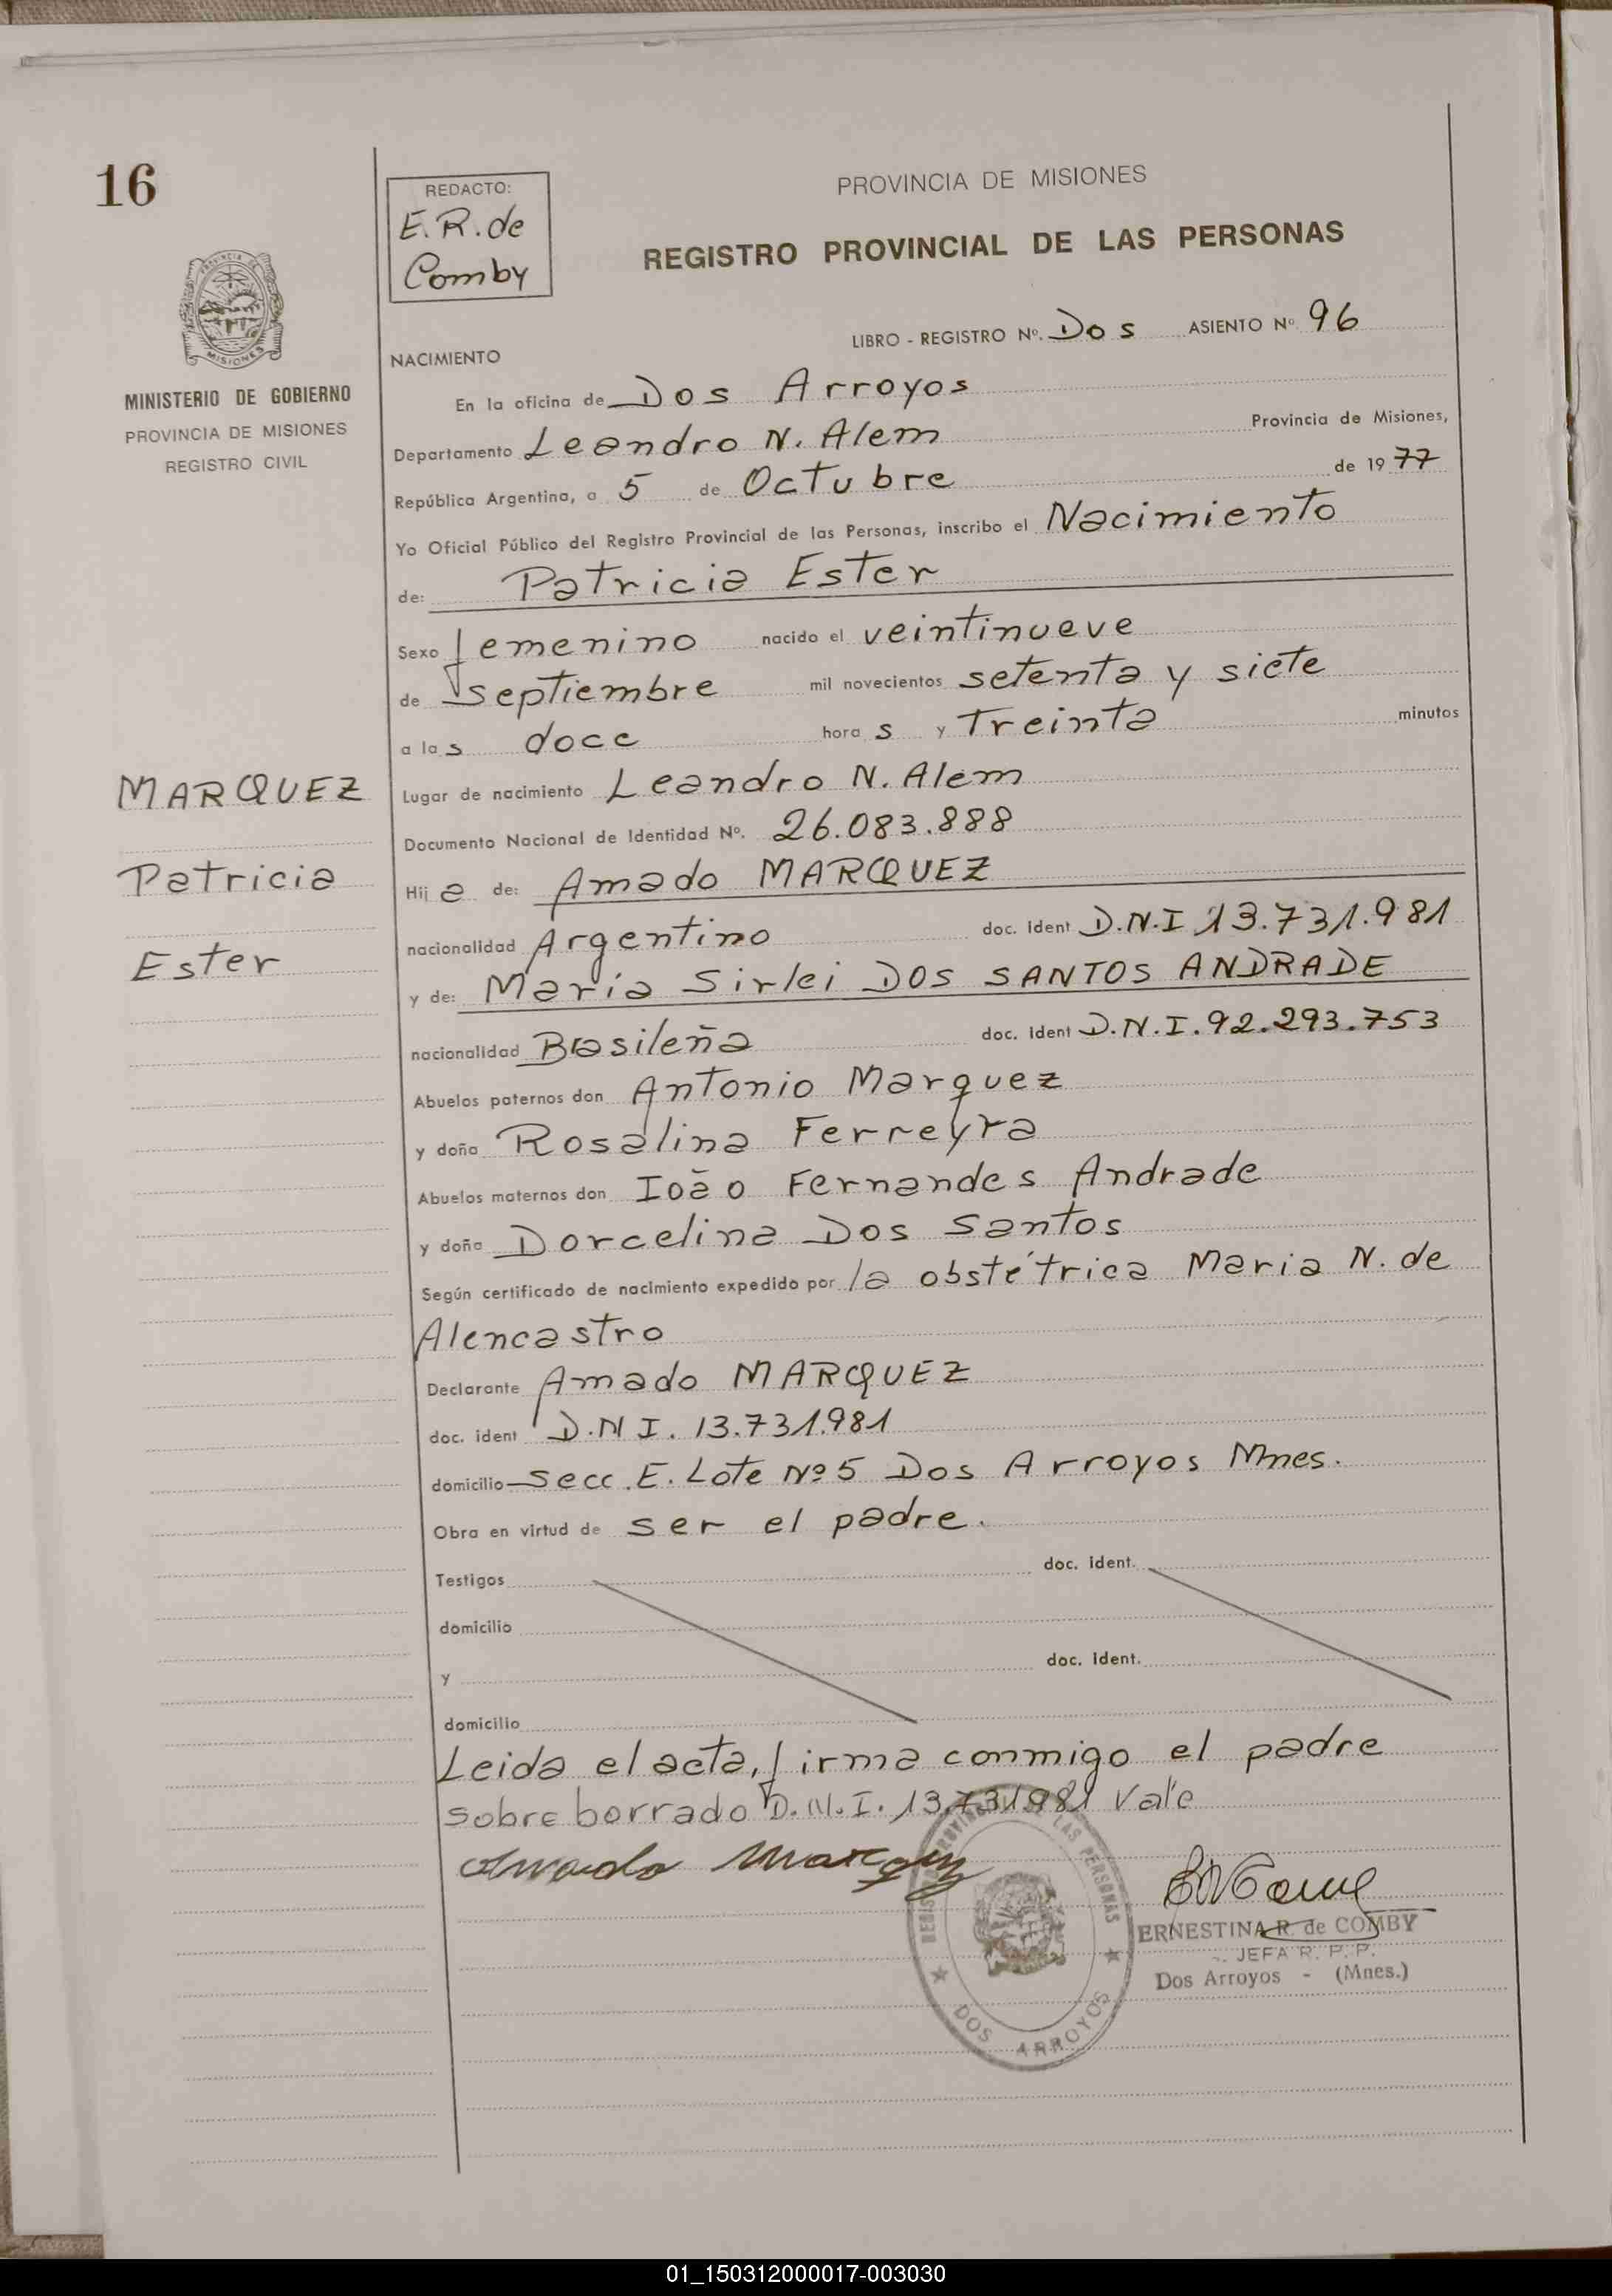 16
REDACTO:
E.R. de
Comby
PROVINCIA DE MISIONES
REGISTRO PROVINCIAL DE LAS PERSONAS
PROVINCIA DE
MISIONES
MINISTERIO DE GOBIERNO
PROVINCIA DE MISIONES
REGISTRO CIVIL
LIBRO - REGISTRO Nº. Dos ASIENTO Nº 96
NACIMIENTO
En la oficina de Dos Arroyos
Departamento Leandro N. Alem Provincia de Misiones,
República Argentina, a 5 de Octubre de 1977
Yo Oficial Público del Registro Provincial de las Personas, inscribo el Nacimiento
de: Patricia Ester
Sexo femenino nacido el veintinueve
de septiembre mil novecientos setenta y siete
a las doce horas y Treinta minutos
MARQUEZ
Patricia
Ester
Lugar de nacimiento Leandro N. Alem
Documento Nacional de Identidad Nº. 26.083.888
Hija de: Amado MARQUEZ
nacionalidad Argentino doc. ident D.N.I 13.731.981
y de: Maria Sirlei DOS SANTOS ANDRADE
nacionalidad Brasileña doc. ident D.N.I. 92.293.753
Abuelos paternos don Antonio Marquez
y doña Rosalina Ferreyra
Abuelos maternos don Ioão Fernandes Andrade
y doña Dorcelina Dos Santos
Según certificado de nacimiento expedido por la obstétrica Maria N. de
Alencastro
Declarante Amado MARQUEZ
doc. ident D.N I. 13.731.981
domicilio Secc. E. Lote Nº 5 Dos Arroyos Mnes.
Obra en virtud de ser el padre.
Testigos doc. ident.
domicilio
y doc. ident.
domicilio
Leida el acta, firma conmigo el padre
sobre borrado D.N.I. 13.731.981 Vale
Amado Marquez
REGISTRO PROVINCIAL DE LAS PERSONAS
DOS ARROYOS
ERNESTINA R. de COMBY
JEFA R. P. P.
Dos Arroyos - (Mnes.)
01_150312000017-003030